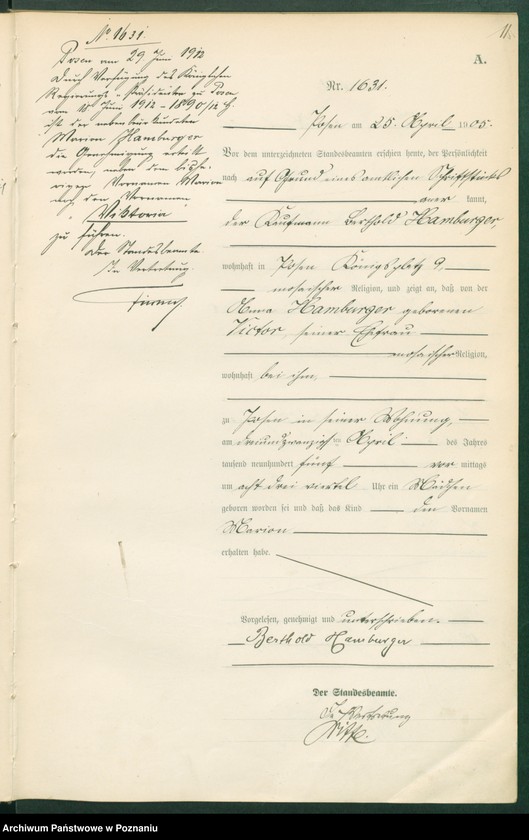 11
A.
Nr. 1631.
Posen am 25. April 1905.
Vor dem unterzeichneten Standesbeamten erschien heute, der Persönlichkeit
nach auf Grund eines amtlichen Schriftstücks
aner kannt,
der Kaufmann Berthold Hamburger,
wohnhaft in Posen Königsplatz 9,
mosaischer Religion, und zeigte an, daß von der
Anna Hamburger geborenen
Victor, seiner Ehefrau
mosaischer Religion,
wohnhaft bei ihm,
zu Posen in seiner Wohnung,
am dreiundzwanzigsten April des Jahres
tausend neunhundert fünf vor mittags
um acht drei viertel Uhr ein Mädchen
geboren worden sei und daß das Kind den Vornamen
Marion
erhalten habe.
Vorgelesen, genehmigt und unterschrieben.
Berthold Hamburger
Der Standesbeamte.
In Vertretung
No 1631.
Posen am 29 Juni 1912
Durch Verfügung des Königlichen
Regierungs-Präsidenten zu Posen
vom Juni 1912
ist der neben beurkundeten
Marion Hamburger
die Genehmigung erteilt
worden, neben dem bishe-
rigen Vornamen Marion
noch den Vornamen
Viktoria
zu führen.
Der Standesbeamte
In Vertretung
Archiwum Państwowe w Poznaniu